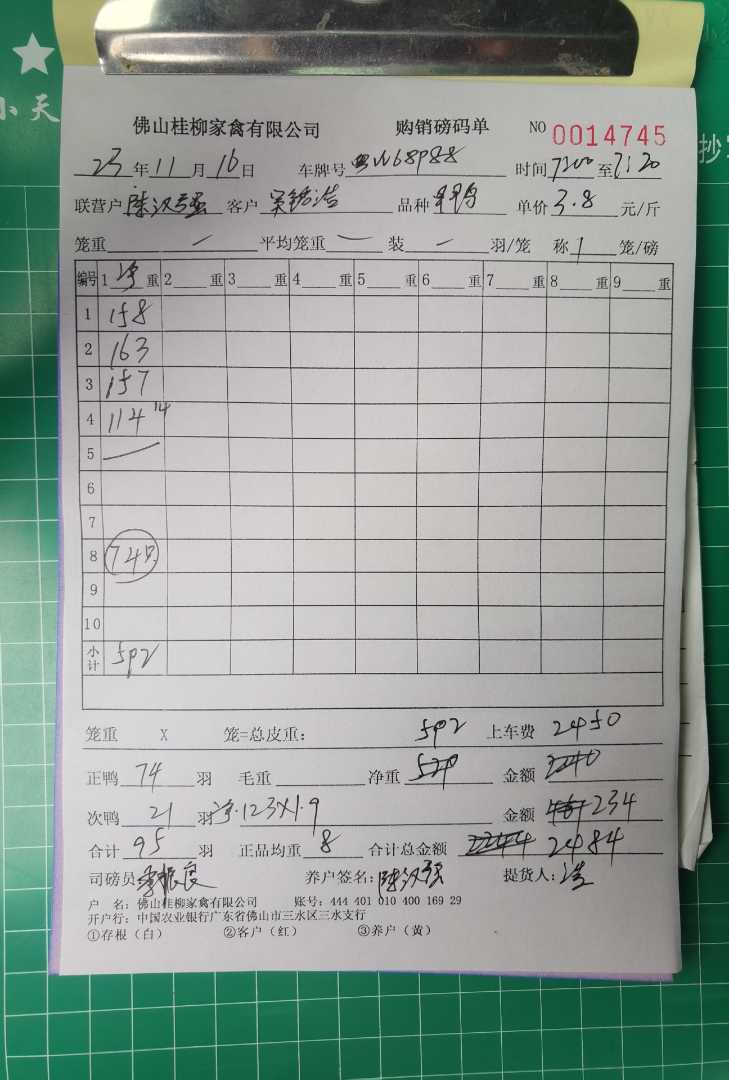 小天
抄写
佛山桂柳家禽有限公司 购销磅码单 NO 0014745
23年11月16日 车牌号粤W68P88 时间7:00至7:20
联营户陈汉强 客户 品种 单价3.8元/斤
笼重 — 平均笼重 — 装 — 羽/笼 称 1 笼/磅
编号 1净重 2 重 3 重 4 重 5 重 6 重 7 重 8 重 9 重
1 158
2 163
3 157
4 114 14
5 —
6
7
8 74只
9
10
小计 592
笼重 X 笼=总皮重: 592 上车费 2450
正鸭 74 羽 毛重 净重 金额 2240
次鸭 21 羽 净·123X1.9 金额 234
合计 95 羽 正品均重 8 合计总金额 2244 2484
司磅员 养户签名:陈汉强 提货人:浩
户 名: 佛山桂柳家禽有限公司 账号: 444 401 010 400 169 29
开户行: 中国农业银行广东省佛山市三水区三水支行
①存根（白） ②客户（红） ③养户（黄）